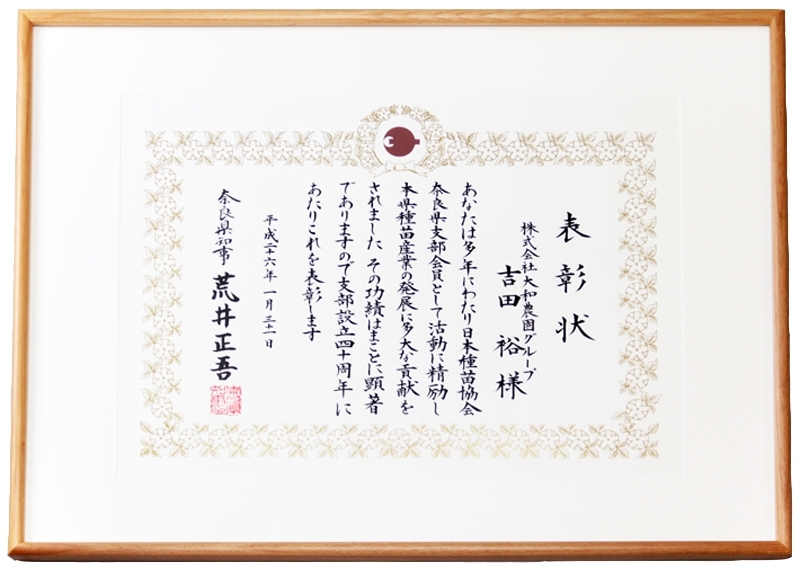 表彰状
株式会社大和農園グループ
吉田裕様
あなたは多年にわたり日本種苗協会
奈良県支部会員として活動に精励し
本県種苗産業の発展に多大な貢献を
されました その功績はまことに顕著
でありますので支部設立四十周年に
あたりこれを表彰します
平成二十六年一月三十一日
奈良県知事 荒井正吾